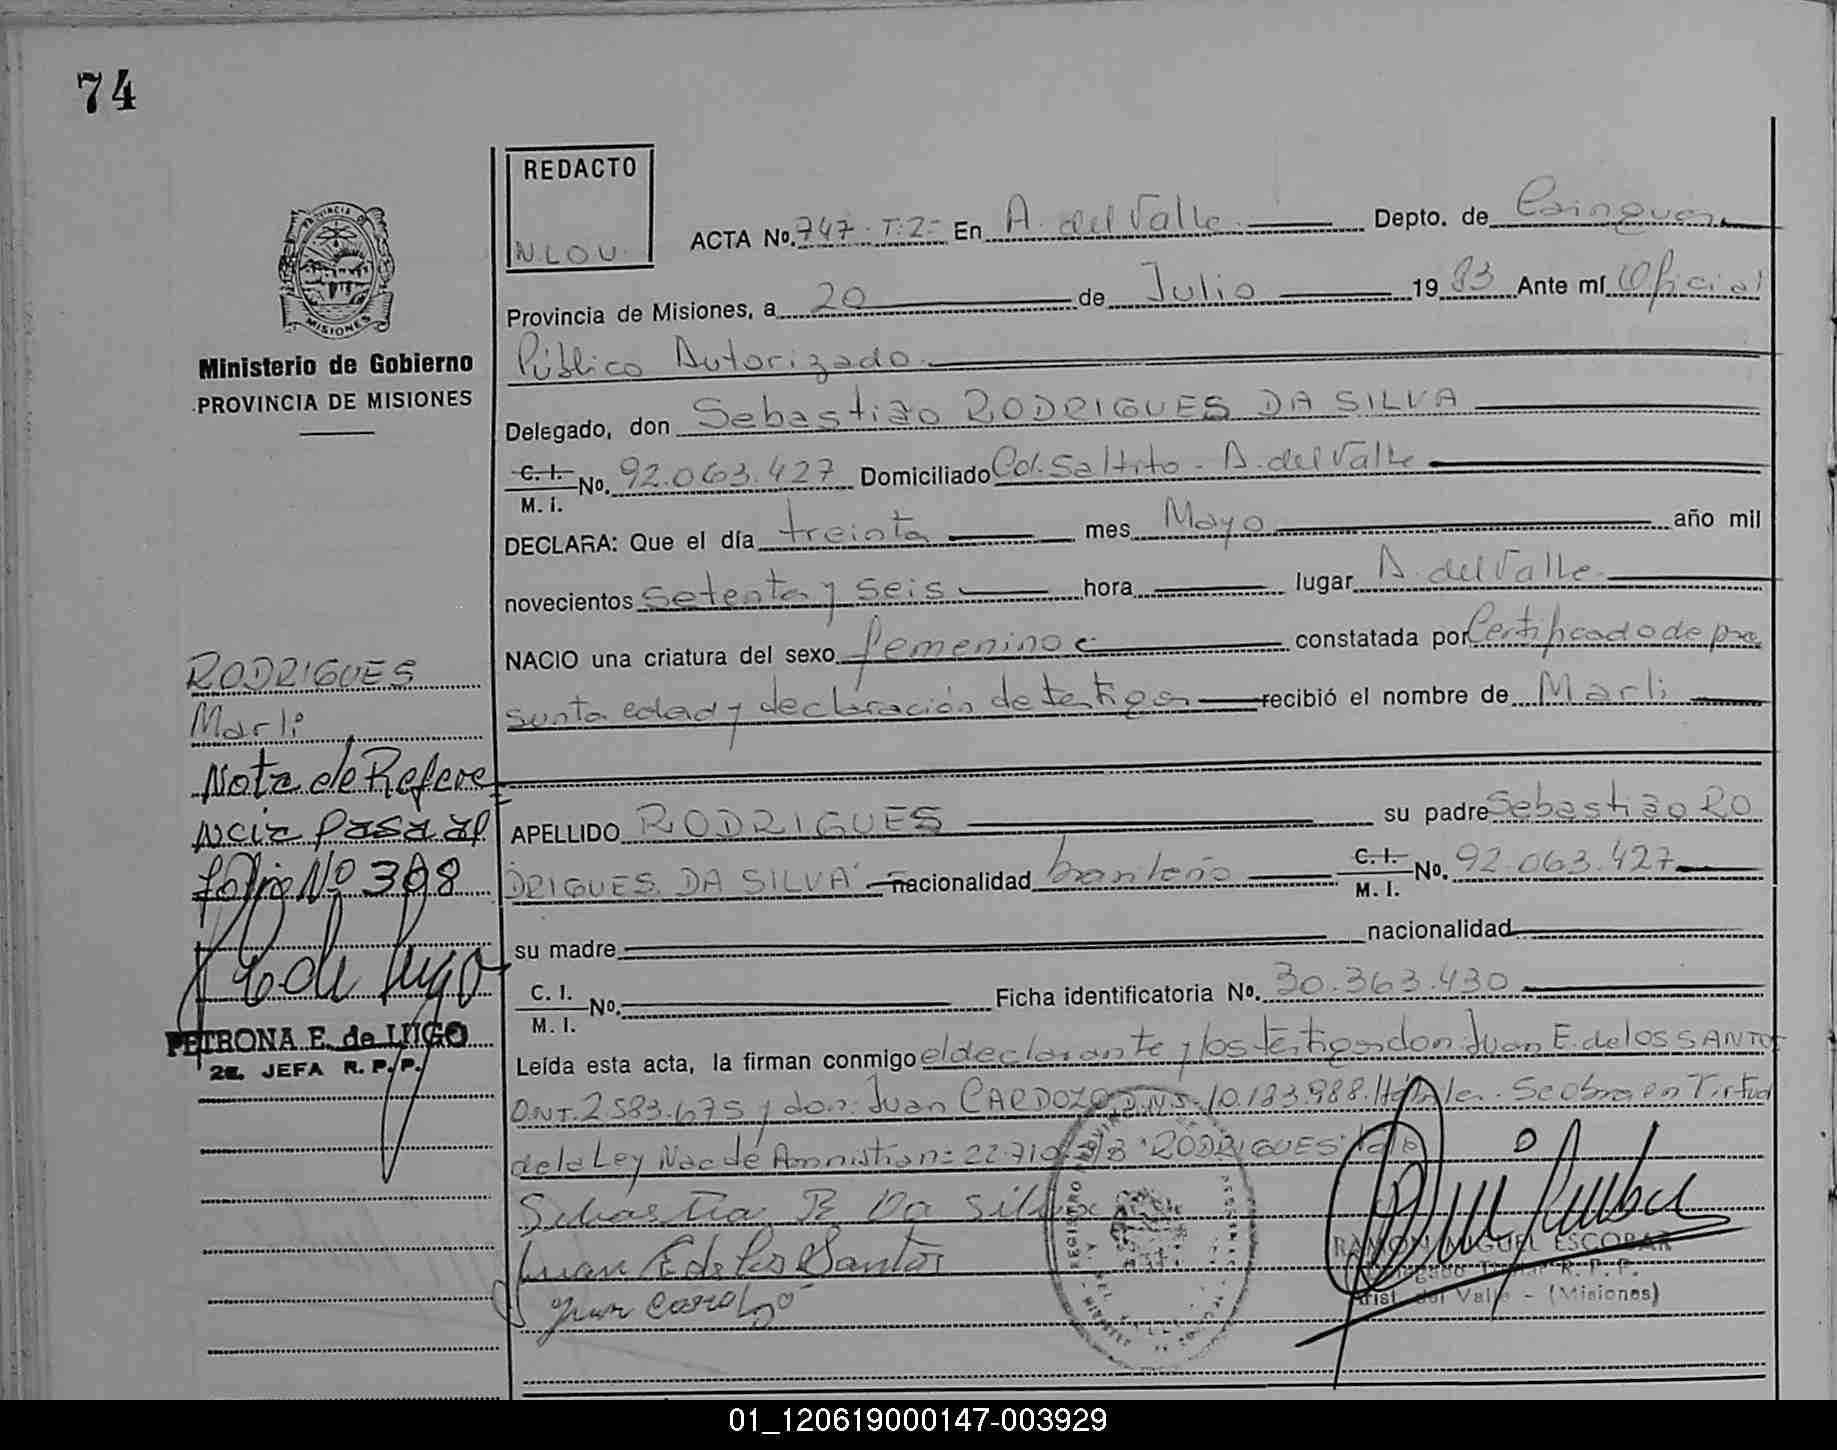 74
REDACTO
N.L.O.U.
PROVINCIA DE
MISIONES
Ministerio de Gobierno
PROVINCIA DE MISIONES
ACTA No. 747-T:2- En A. del Valle Depto. de Cainguas
Provincia de Misiones, a 20 de Julio 1983 Ante mí Oficial
Público Autorizado
Delegado, don Sebastião RODRIGUES DA SILVA
C. I. M. I. No. 92.063.427 Domiciliado Col. Saltito - A. del Valle
DECLARA: Que el día treinta mes Mayo año mil
novecientos setenta y seis hora lugar A. del Valle
NACIO una criatura del sexo femenino constatada por Certificado de pre
sunta edad y declaración de testigos recibió el nombre de Marli
APELLIDO RODRIGUES su padre Sebastião RO
DRIGUES DA SILVA nacionalidad brasileño C. I. M. I. No. 92.063.427
su madre nacionalidad
C. I. M. I. No. Ficha identificatoria No. 30.363.430
Leída esta acta, la firman conmigo el declarante y los testigos don Juan E. de los SANTOS
D.N.I. 2.583.675 y don: Juan CARDOZO D.N.I. 10.183.988. Hábiles. Se obra en Virtud
de la Ley Nac de Amnistia n: 22.710 "RODRIGUES" Vale
Sebastia R Da Silva
Juan E de los Santos
Juan Cardozo
RAMON MIGUEL ESCOBAR
Delegado Titular R. P. P.
Arist. del Valle - (Misiones)
RODRIGUES
Marli
Nota de Refere
ncia Pasa al
folio Nº 398
P E de Lugo
PETRONA E. de LUGO
2a. JEFA R. P. P.
01_120619000147-003929